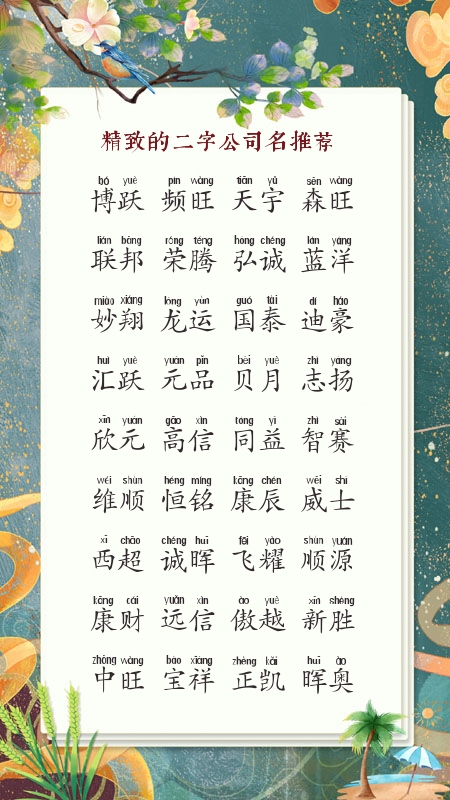 精致的二字公司名推荐
bó yuè pín wàng tiān yǔ sēn wàng
博跃 频旺 天宇 森旺
lián bāng róng téng hóng chéng lán yáng
联邦 荣腾 弘诚 蓝洋
miào xiáng lóng yùn guó tài dí háo
妙翔 龙运 国泰 迪豪
huì yuè yuán pǐn bèi yuè zhì yáng
汇跃 元品 贝月 志扬
xīn yuán gāo xìn tóng yì zhì sài
欣元 高信 同益 智赛
wéi shùn héng míng kāng chén wēi shì
维顺 恒铭 康辰 威士
xī chāo chéng huī fēi yào shùn yuán
西超 诚晖 飞耀 顺源
kāng cái yuǎn xìn ào yuè xīn shèng
康财 远信 傲越 新胜
zhōng wàng bǎo xiáng zhèng kǎi huī ào
中旺 宝祥 正凯 晖奥